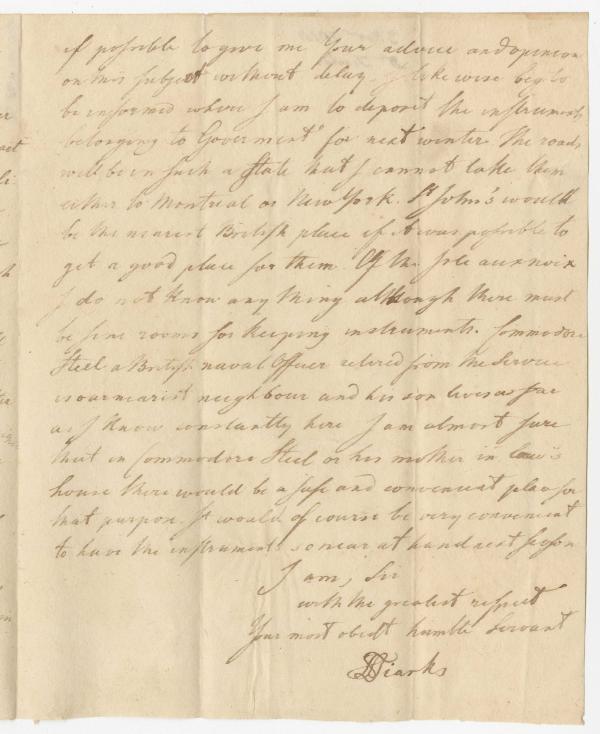 if possible to give me Your advice and opinion
on this subject without delay. I likewise beg to
be informed where I am to deposit the instruments
belonging to Goverment for next winter. the roads
will be in such a State that I cannot take them
either to Montreal or New York. St John's would
be the nearest British place if it was possible to
get a good place for them. Of the Isle aux noix
I do not know any thing although there must
be fine rooms for keeping instruments. Commodore
Steel a British naval Officer retired from the Service
is our nearist neighbour and his son lives as far
as I know constantly here I am almost sure
that in Commodore Steel or his mother in law's
house there would be a safe and convenient place for
that purpose. It would of course be very convenient
to have the instruments so near at hand next season
I am, Sir
with the greatest respect
Your most obedt humble Servant
Tiarks